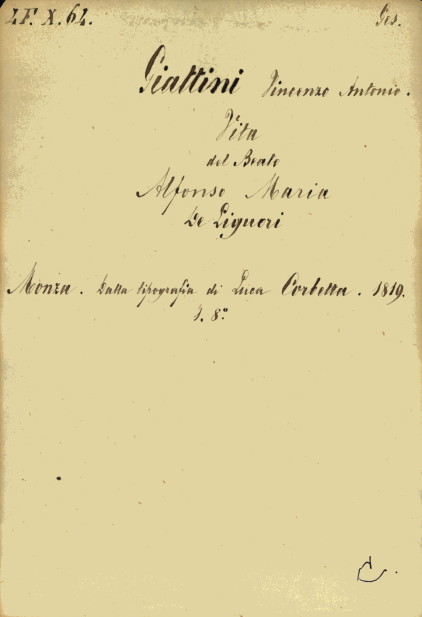 LF. X. 62. Ges.
Giattini Vincenzo Antonio.
Vita
del Beato
Alfonso Maria
De Liguori
Monza. Dalla tipografia di Luca Corbetta. 1819.
8.º